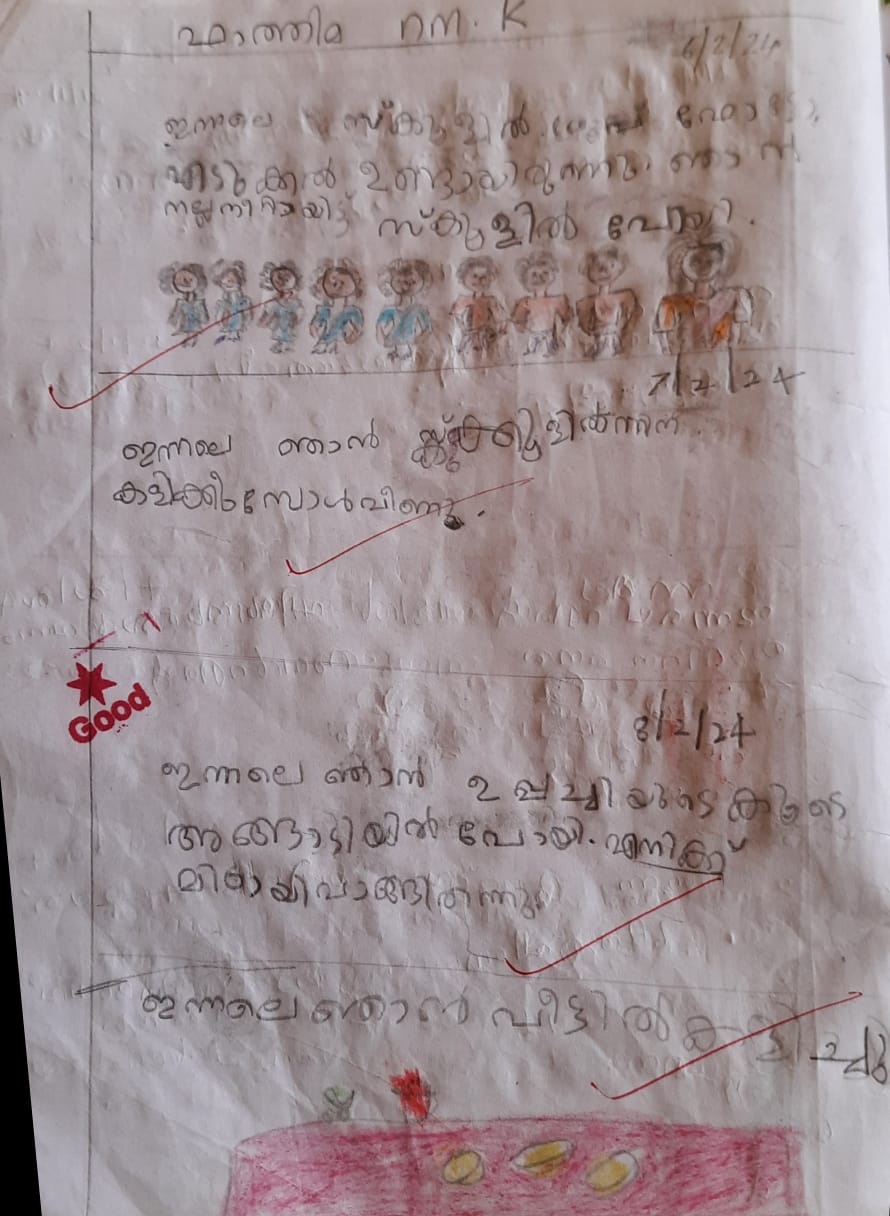 ഫാത്തിമ നസ. K
6/2/24
ഇന്നലെ സ്കൂളിൽ ഫോട്ടോ
എടുക്കൽ ഉണ്ടായിരുന്നു. ഞാൻ
നല്ലനീറ്റായിട്ട് സ്കൂളിൽ പോയി.
7/2/24
ഇന്നലെ ഞാൻ സ്കൂളിൽനിന്ന്
കളിക്കുംമ്പോൾവീണു.
Good
8/2/24
ഇന്നലെ ഞാൻ ഉപ്പച്ചിയുടെകൂടെ
അങ്ങാടിയിൽ പോയി. എനിക്ക്
മിഠായിവാങ്ങിതന്നു.
ഇന്നലെ ഞാൻ വീട്ടിൽ കളിച്ചു